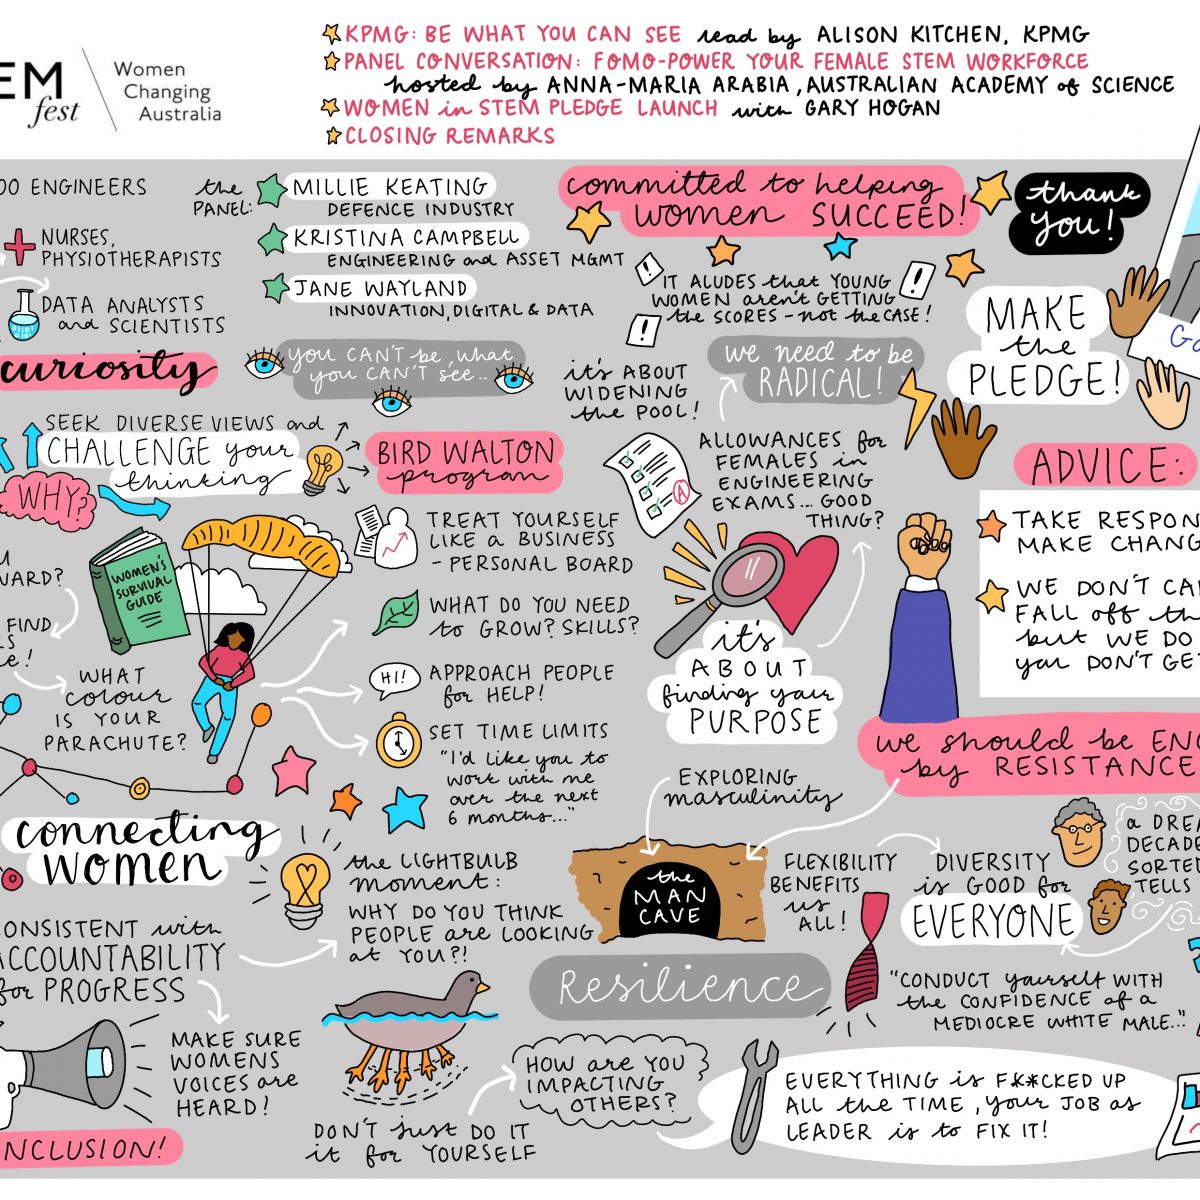 EM
fest
Women
Changing
Australia
KPMG: BE WHAT YOU CAN SEE read by ALISON KITCHEN, KPMG
PANEL CONVERSATION: FOMO-POWER YOUR FEMALE STEM WORKFORCE
hosted by ANNA-MARIA ARABIA, AUSTRALIAN ACADEMY of SCIENCE
WOMEN in STEM PLEDGE LAUNCH with GARY HOGAN
CLOSING REMARKS
00 ENGINEERS
NURSES,
PHYSIOTHERAPISTS
DATA ANALYSTS
and SCIENTISTS
the
PANEL:
MILLIE KEATING
DEFENCE INDUSTRY
KRISTINA CAMPBELL
ENGINEERING and ASSET MGMT
JANE WAYLAND
INNOVATION, DIGITAL & DATA
committed to helping
women SUCCEED!
thank
you!
IT ALUDES that YOUNG
WOMEN aren't GETTING
the SCORES - not the CASE!
MAKE
the
PLEDGE!
curiosity
you CAN'T be, what
you CAN'T see...
it's ABOUT
WIDENING
the POOL!
we need to be
RADICAL!
SEEK DIVERSE VIEWS and
CHALLENGE your
thinking
WHY?
BIRD WALTON
program
ALLOWANCES for
FEMALES in
ENGINEERING
EXAMS... GOOD
THING?
A
ADVICE:
TAKE RESPON
MAKE CHANG
WE DON'T CA
FALL off th
but WE DO
you DON'T GET
WOMEN'S
SURVIVAL
GUIDE
WARD?
FIND
WHAT
colour
IS YOUR
PARACHUTE?
TREAT YOURSELF
LIKE a BUSINESS
- PERSONAL BOARD
WHAT DO YOU NEED
to GROW? SKILLS?
HI!
APPROACH PEOPLE
for HELP!
SET TIME LIMITS
"I'd like you to
work with me
over the next
6 months..."
it's
ABOUT
finding your
PURPOSE
we should be EN
by RESISTANCE
connecting
WOMEN
the LIGHTBULB
moment:
WHY DO YOU THINK
PEOPLE are LOOKING
at YOU?!
EXPLORING
masculinity
the
MAN
CAVE
FLEXIBILITY
BENEFITS
us
ALL!
DIVERSITY
is GOOD for
EVERYONE
a DREA
DECADE
SORTED
TELLS
ONSISTENT with
ACCOUNTABILITY
for PROGRESS
MAKE SURE
WOMENS
VOICES are
HEARD!
NCLUSION!
Resilience
"CONDUCT yourself WITH
the CONFIDENCE of a
MEDIOCRE WHITE MALE..."
DON'T just DO IT
it for YOURSELF
HOW are YOU
IMPACTING
OTHERS?
EVERYTHING is F**CKED UP
ALL the TIME, your JOB as
LEADER is to FIX IT!